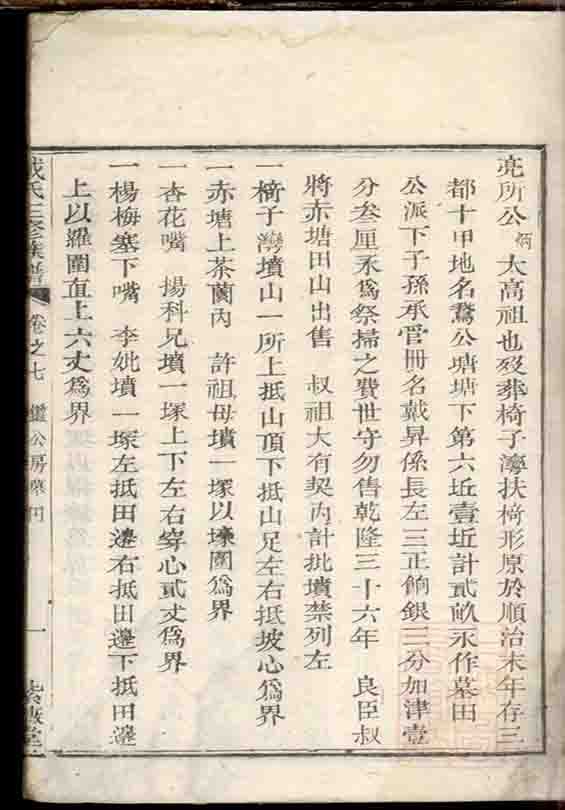 亮所公炳太高祖也歿葬椅子灣扶椅形原於順治末年存三
都十甲地名鵞公塘塘下第六坵壹坵計貳畝永作墓田
公派下子孫承官冊名戴昇係長左三正餉銀三分加津壹
分叁厘永爲祭掃之費世守勿售乾隆三十六年　良臣叔
將赤塘田山出售　叔祖大有契內計批墳禁列左
一椅子灣墳山一所上抵山頂下抵山足左右抵坡心爲界
一赤塘上茶蘭內　許祖母墳一塚以壕圍爲界
一杏花嘴　揚科兄墳一塚上下左右穿心貳丈爲界
一楊梅塞下嘴　李妣墳一塚左抵田邊右抵田邊下抵田邊
上以羅圍直上六丈爲界
氏三修族譜　卷之七　公房墓図　一